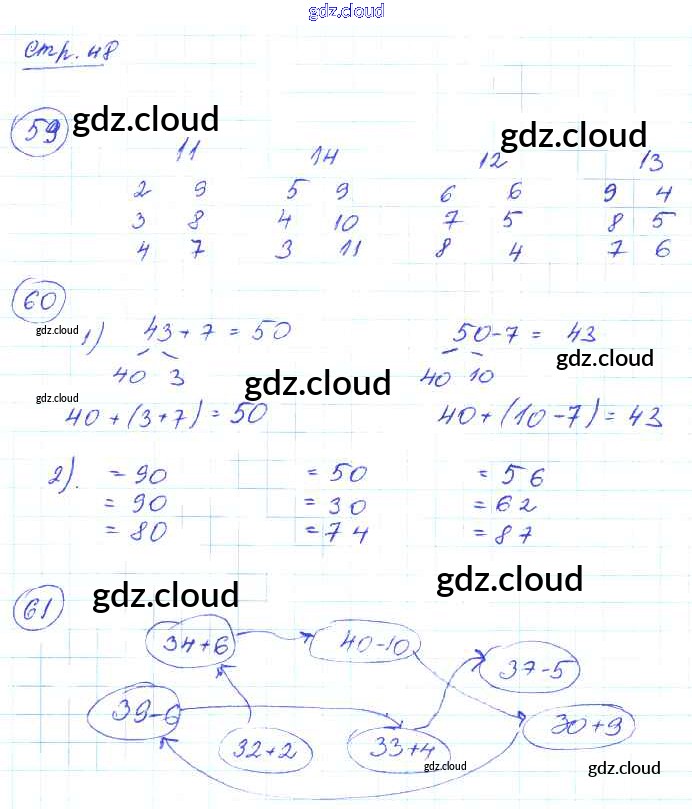 gdz.cloud
Стр. 48
59 gdz.cloud gdz.cloud
11 14 12 13
2 9 5 9 6 6 9 4
3 8 4 10 7 5 8 5
4 7 3 11 8 4 7 6
60
gdz.cloud 1) 43+7=50 50-7= 43
40 3 gdz.cloud 40 10 gdz.cloud
gdz.cloud
40+(3+7)=50 40+(10-7)=43
2). =90 =50 =56
=90 =30 =62
=80 =74 =87
61 gdz.cloud gdz.cloud
34+6 40-10 37-5
39-6 30+9
32+2 33+4
gdz.cloud gdz.cloud